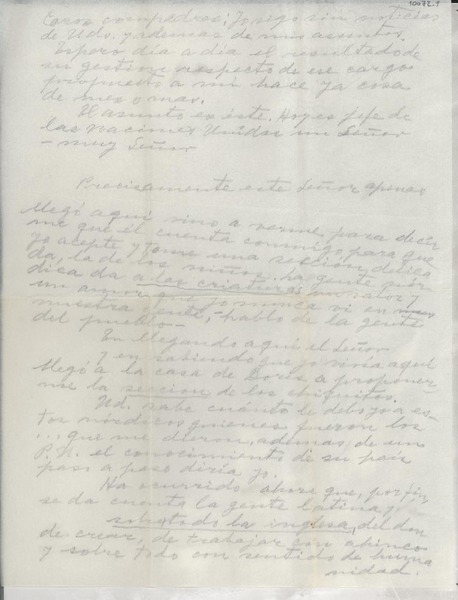 10072.1
Caros compadres: Yo sigo sin noticias
de Uds. y además de mis asuntos.
Espero día a día el resultado de
su gestión respecto de ese cargo
propuesto a mí hace ya cosa
de mes o mas.
El asunto es éste. Hoy es jefe de
las Naciones Unidas un Señor
- muy Señor
Precisamente este Señor apenas
llegó aquí vino a verme para decir
me que él cuenta conmigo para que
yo acepte y tome una sección delica
da, la de los niños. La gente nór
dica da a las criaturas un valor y
un amor que yo nunca vi en
nuestra gente, - hablo de la gente
del pueblo -
En llegando aquí el Señor
y en sabiendo que yo vivía aquí
llegó a la casa de Doris a proponer
me la sección de los chiquitos.
Ud. sabe cuánto le debo yo a es-
tos nórdicos quienes fueron los
... que me dieron, además de un
P. N. el conocimiento de su país
paso a paso diría yo.
Ha ocurrido ahora que, por fin,
se da cuenta la gente latina, y
sobretodo la inglesa, del don
de crear, de trabajar con ahinco
y sobre todo con sentido de huma
nidad.